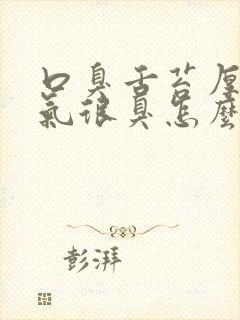 口臭舌苔厚
氣很臭怎麼
彭湃